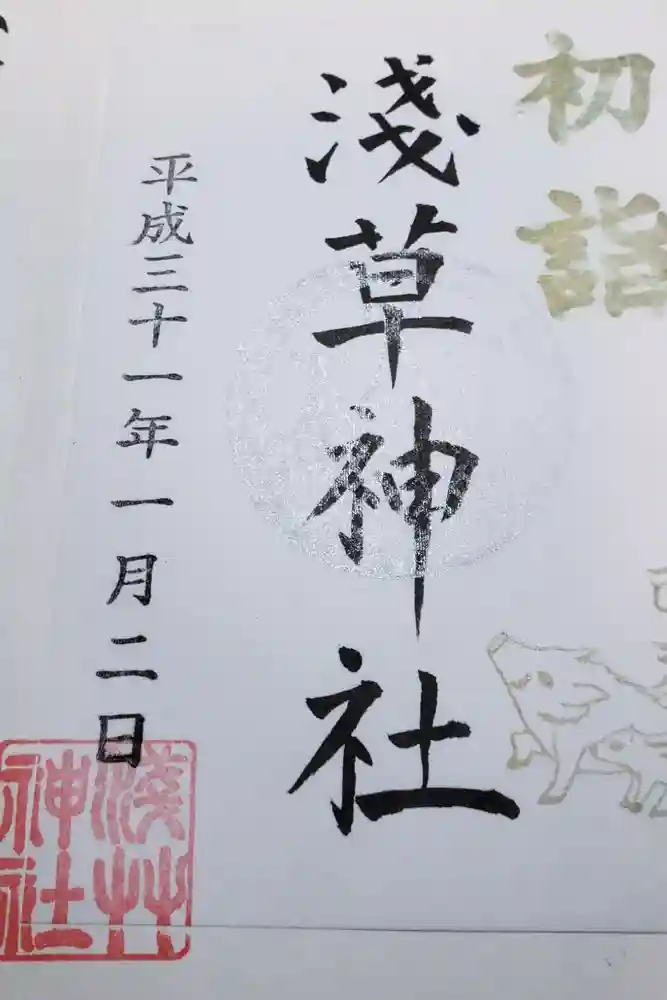 初詣
淺草神社
平成三十一年一月二日
淺草
神社